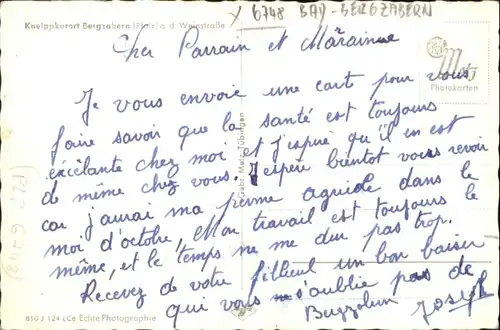 Kneippkurort Bergzabern (Pfalz) a. d. Weinstraße
X 6748 BAD-BERGZABERN
Cher Parrain et Märainne
Photokarten
Je vous envoie une carte pour vous
faire savoir que la santé est toujours
exélante chez moi et j'espère qu'il en est
de même chez vous. J'espère bientot vous revoir
car j'aurai ma perme agricole dans le
moi d'octobre, Mon travail est toujours le
même, et le temps ne me dur pas trop.
Recevez de votre filleul un bon baiser
qui vous n'oublie pas de
Joseph
Gebr. Metz, Tübingen
810 J 124 cCe Echte Photographie